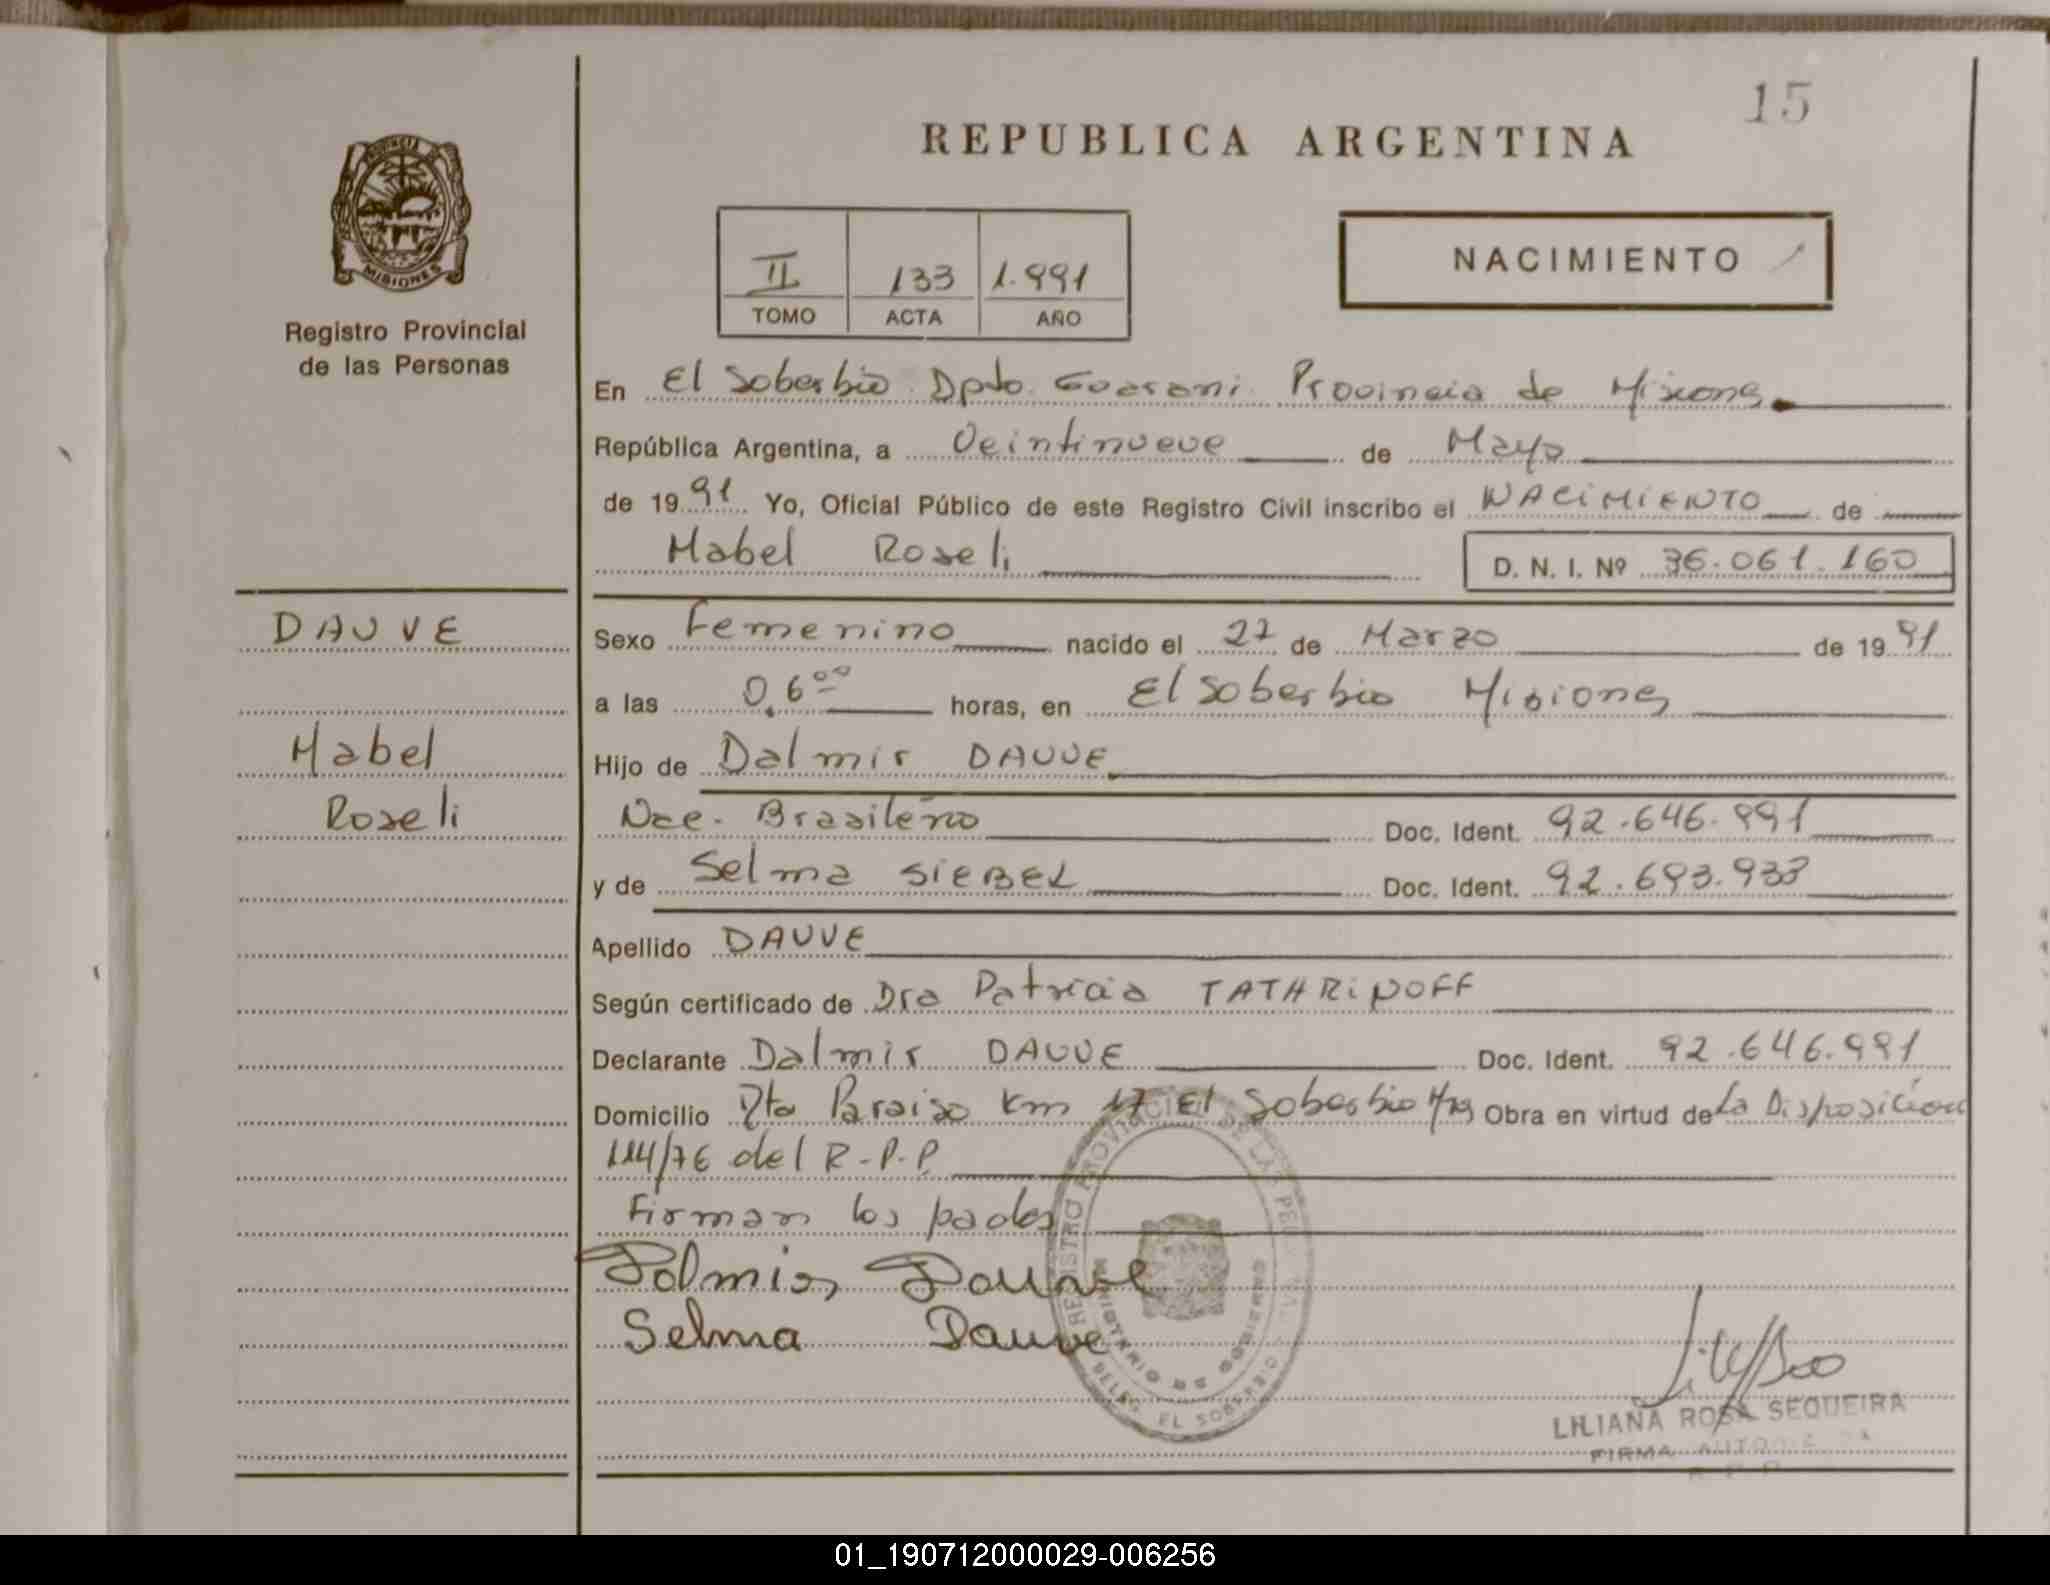 15
REPUBLICA ARGENTINA
PROVINCIA DE
MISIONES
Registro Provincial
de las Personas
II 133 1.991
TOMO ACTA AÑO
NACIMIENTO
En El Soberbio Dpto. Guarani Provincia de Misiones
República Argentina, a Veintinueve de Mayo
de 1991 Yo, Oficial Público de este Registro Civil inscribo el NACIMIENTO de
Mabel Roseli D. N. I. Nº 36.061.160
DAUVE
Mabel
Roseli
Sexo Femenino nacido el 27 de Marzo de 1991
a las 06 00 horas, en El Soberbio Misiones
Hijo de Dalmir DAUVE
Nac. Brasileño Doc. Ident. 92.646.991
y de Selma SIEBEL Doc. Ident. 92.693.933
Apellido DAUVE
Según certificado de Dra Patricia TATHRINOFF
Declarante Dalmir DAUVE Doc. Ident. 92.646.991
Domicilio Pto Paraiso Km 17 El Soberbio Mns Obra en virtud de La Disposición
114/76 del R.P.P.
Firman los padres
Dalmir Dauve
Selma Dauve
REGISTRO PROVINCIAL DE LAS PERSONAS
MINISTERIO DE GOBIERNO
DELEG. EL SOBERBIO
LILIANA ROSA SEQUEIRA
FIRMA AUTORIZADA
R. P. P.
01_190712000029-006256